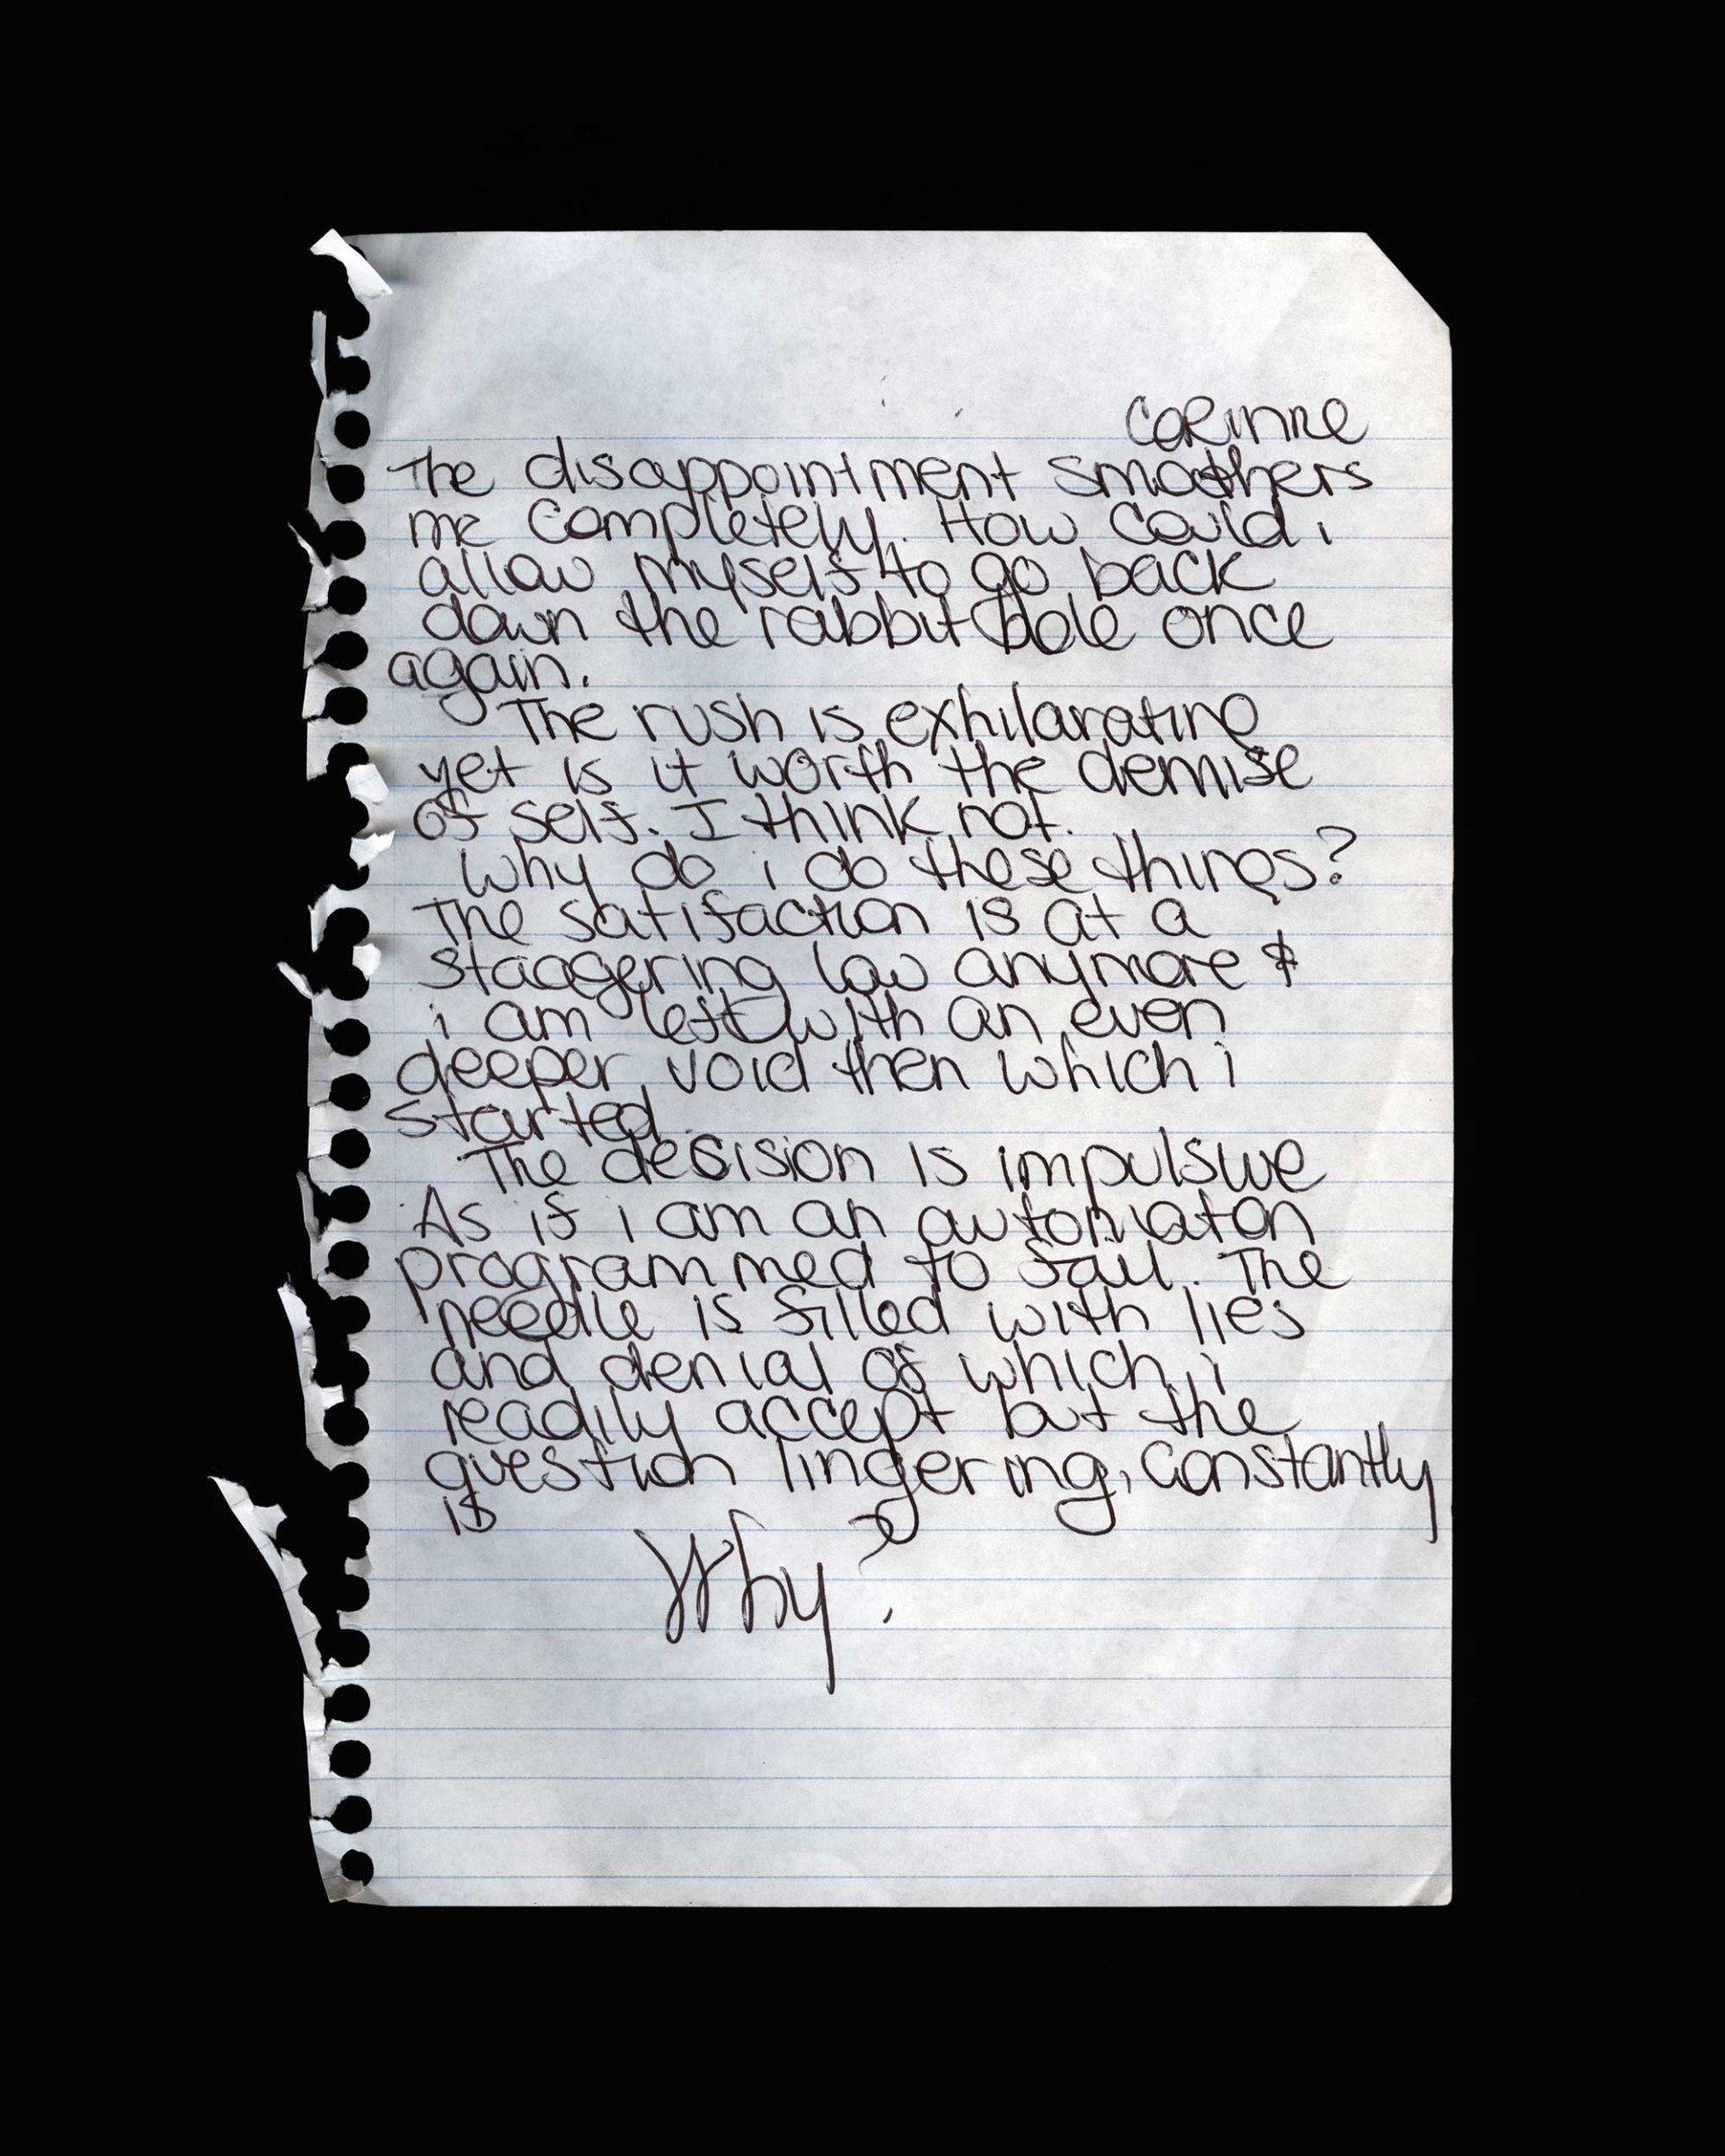 CoRinne
The disappointment smothers
me completely. How could i
allow myself to go back
down the rabbit hole once
again.
The rush is exhilarating
yet is it worth the demise
of self. I think not.
Why do i do these things?
The satifaction is at a
staggering low anymore &
i am left with an even
deeper void then which i
started.
The decision is impulsive
As if i am an automaton
programmed to fail. The
needle is filled with lies
and denial of which i
readily accept but the
question lingering, constantly
is
Why?